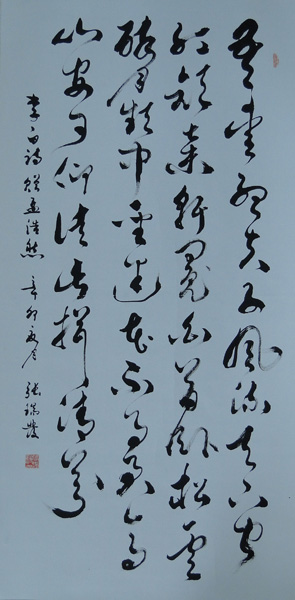 吾愛孟夫子風流天下聞
紅顏棄軒冕白首臥松雲
醉月頻中聖迷花不事君高
山安可仰徒此揖清芬
李白詩贈孟浩然 辛卯 張瑞